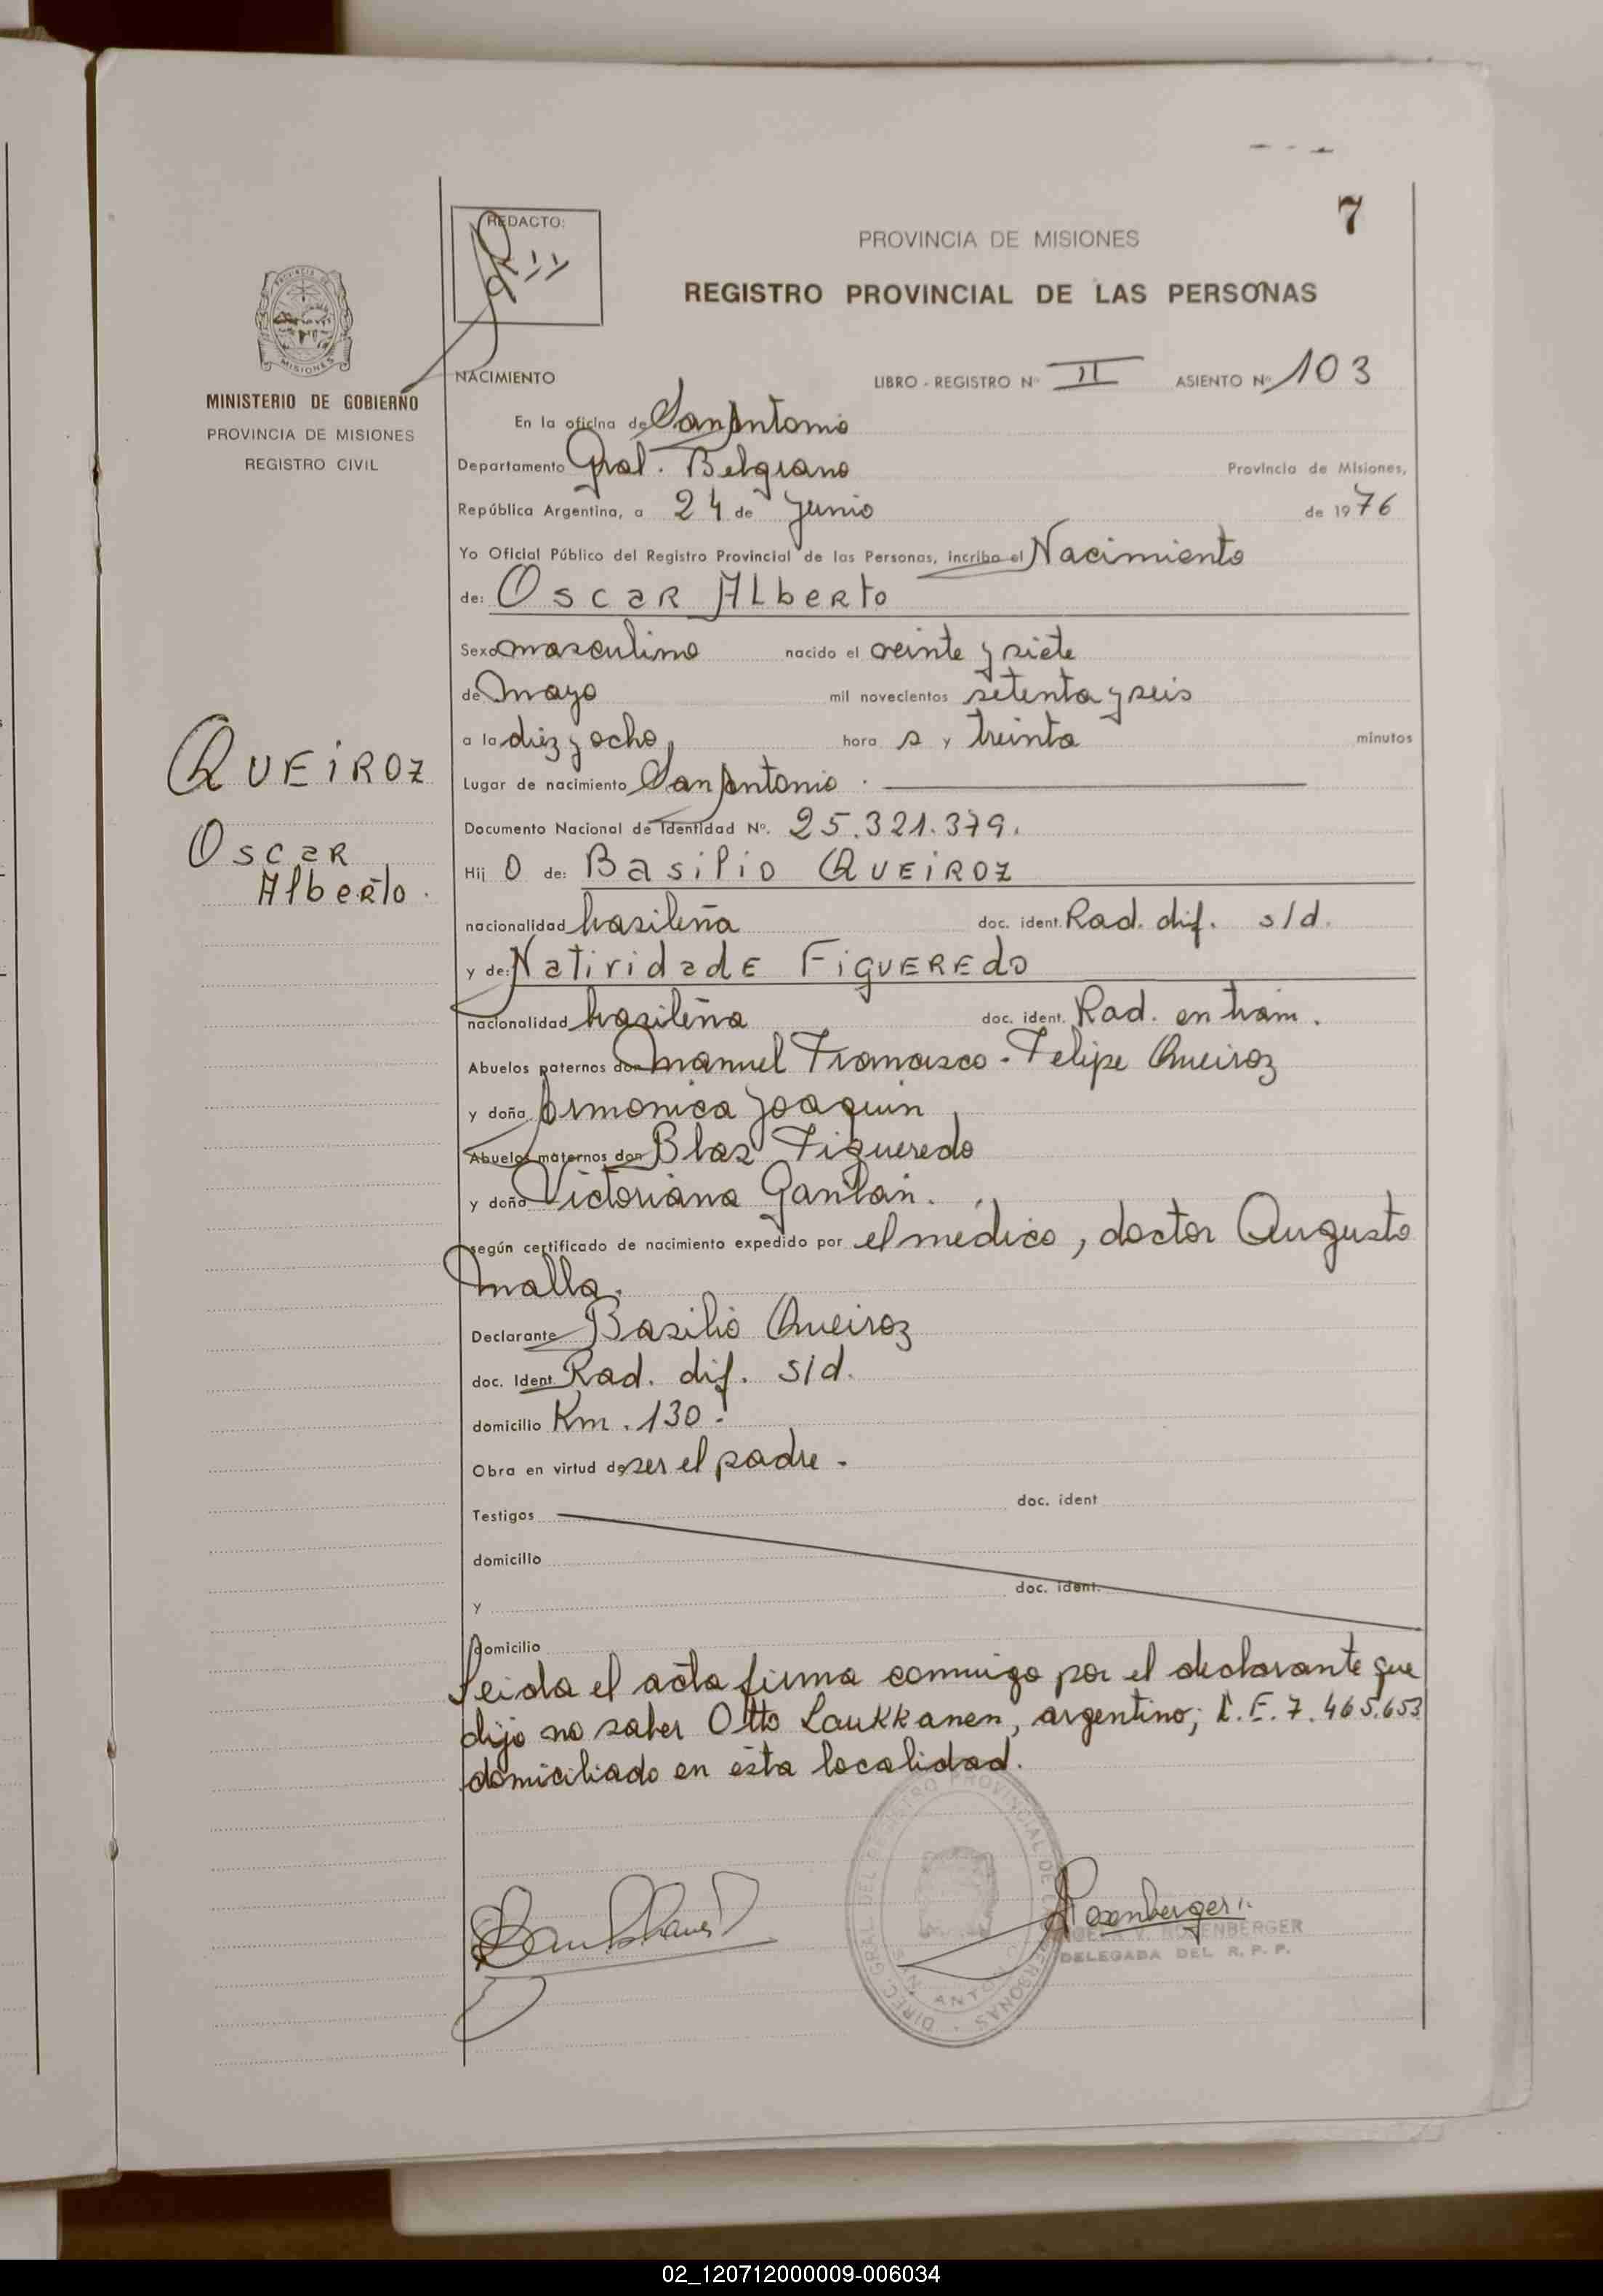 7
REDACTO:
PROVINCIA DE MISIONES
REGISTRO PROVINCIAL DE LAS PERSONAS
MISIONES
MINISTERIO DE GOBIERNO
PROVINCIA DE MISIONES
REGISTRO CIVIL
QUEIROZ
Oscar
Alberto.
NACIMIENTO LIBRO - REGISTRO Nº II ASIENTO Nº 103
En la oficina de San Antonio
Departamento Gral. Belgrano Provincia de Misiones,
República Argentina, a 24 de Junio de 1976
Yo Oficial Público del Registro Provincial de las Personas, incribo el Nacimiento
de: Oscar Alberto
Sexo masculino nacido el veinte y siete
de Mayo mil novecientos setenta y seis
a la diez y ocho hora s y treinta minutos
Lugar de nacimiento San Antonio.
Documento Nacional de Identidad Nº. 25.321.379.
Hij O de: Basilio QUEIROZ
nacionalidad brasileña doc. ident. Rad. dif. s/d.
y de: Natividade Figueredo
nacionalidad brasileña doc. ident. Rad. en trám.
Abuelos paternos don Manuel Francisco - Felipe Queiroz
y doña Armonica Joaquin
Abuelos maternos don Blas Figueredo
y doña Victoriana
según certificado de nacimiento expedido por el médico, doctor Augusto
Malla.
Declarante Basilio Queiroz
doc. Ident. Rad. dif. s/d.
domicilio Km. 130.
Obra en virtud de ser el padre.
Testigos doc. ident
domicilio
y doc. ident.
domicilio
Leida el acta firma conmigo por el declarante que
dijo no saber Otto Laukkanen, argentino; L.E. 7.465.653
domiciliado en ésta localidad.
DIREC. GRAL. DEL REGISTRO PROVINCIAL DE LAS PERSONAS
SAN ANTONIO
Rosenberger
V. ROSENBERGER
DELEGADA DEL R. P. P.
02_120712000009-006034